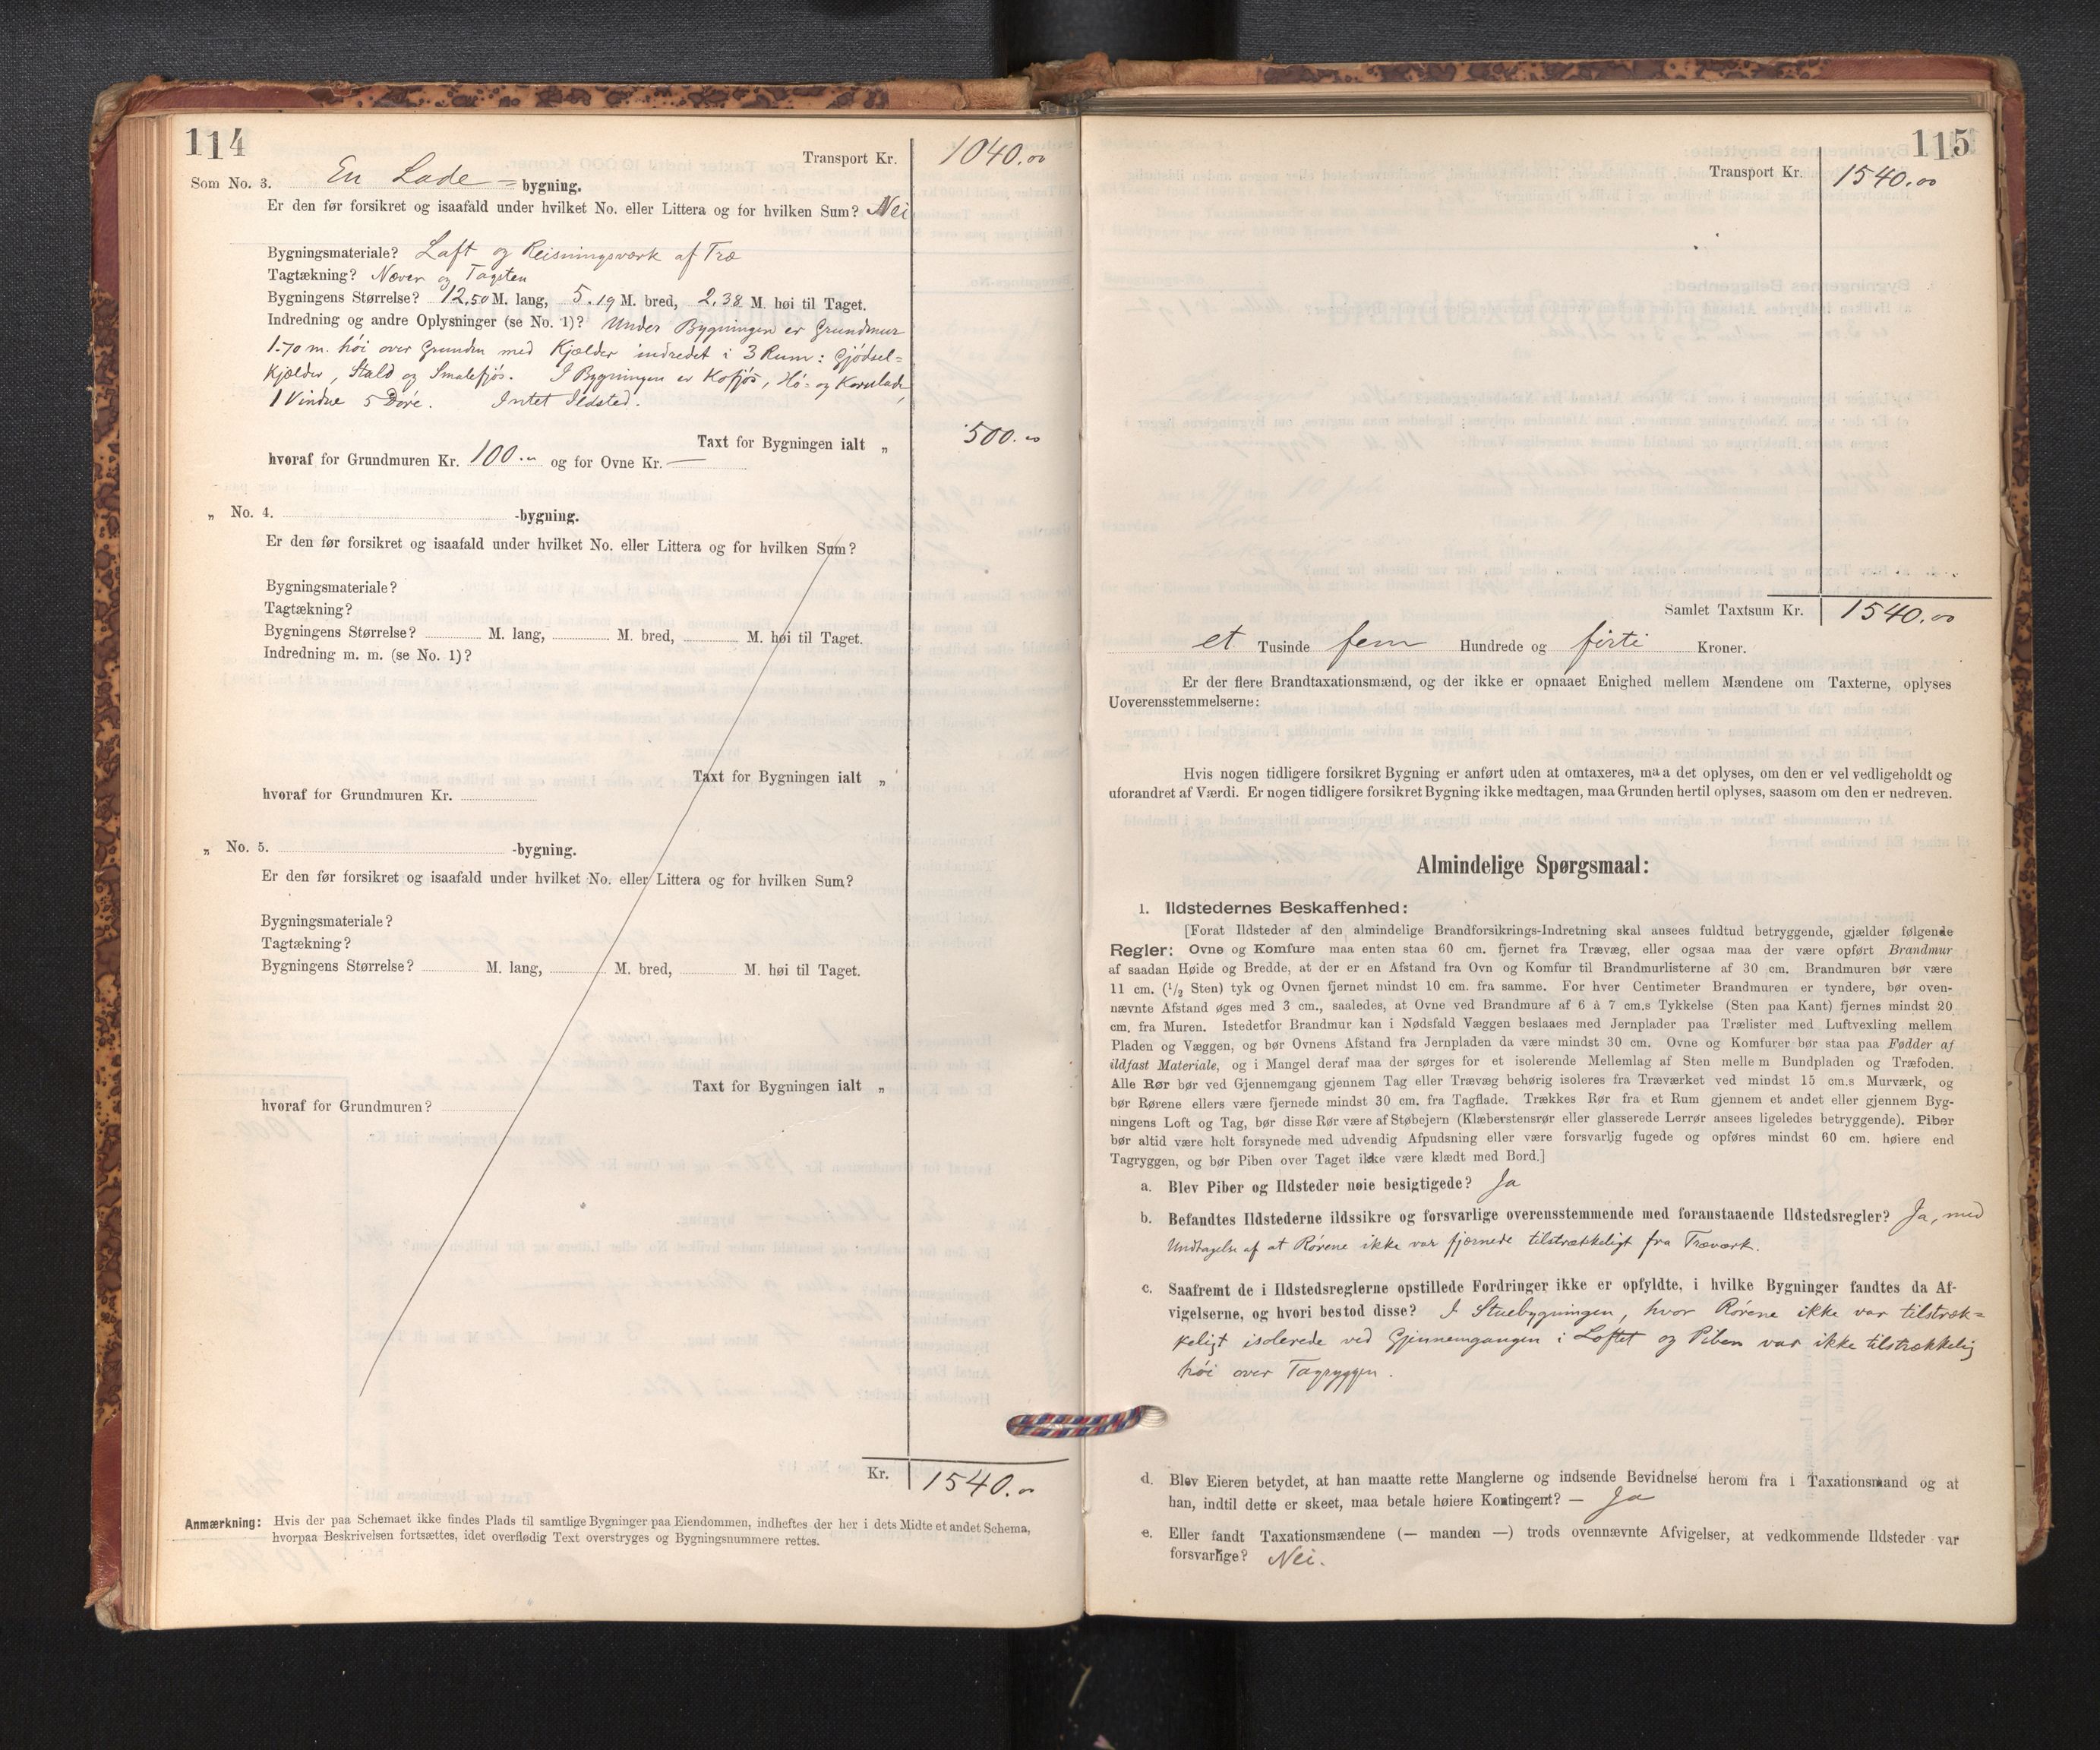 114
Transport Kr. 1040.00
Som No. 3. En Lade - bygning.
Er den før forsikret og isaafald under hvilket No. eller Littera og for hvilken Sum? Nei
Bygningsmateriale? Laft og Reisningsværk af Træ
Tagtækning? Næver og Tagsten
Bygningens Størrelse? 12,50 M. lang, 5.19 M. bred, 2,38 M. høi til Taget.
Indredning og andre Oplysninger (se No. 1)? Under Bygningen er Grundmur
1.70 m. høi over Grunden med Kjælder indredet i 3 Rum: Gjødsel=
kjælder, Stald og Smalefjøs. I Bygningen er Kofjøs, Hø- og Kornlade,
1 Vindue 5 Døre. Intet Ildsted.
Taxt for Bygningen ialt „ 500.00
hvoraf for Grundmuren Kr. 100.00 og for Ovne Kr. —
„ No. 4. -bygning.
Er den før forsikret og isaafald under hvilket No. eller Littera og for hvilken Sum?
Bygningsmateriale?
Tagtækning?
Bygningens Størrelse? M. lang, M. bred, M. høi til Taget.
Indredning m. m. (se No. 1)?
Taxt for Bygningen ialt „
hvoraf for Grundmuren Kr.
„ No. 5. -bygning.
Er den før forsikret og isaafald under hvilket No. eller Littera og for hvilken Sum?
Bygningsmateriale?
Tagtækning?
Bygningens Størrelse? M. lang, M. bred, M. høi til Taget.
Taxt for Bygningen ialt „
hvoraf for Grundmuren?
Kr. 1540.00
Anmærkning: Hvis der paa Schemaet ikke findes Plads til samtlige Bygninger paa Eiendommen, indheftes der her i dets Midte et andet Schema,
hvorpaa Beskrivelsen fortsættes, idet overflødig Text overstryges og Bygningsnummere rettes.
115
Transport Kr. 1540.00
Samlet Taxtsum Kr. 1540.00
et Tusinde fem Hundrede og firti Kroner.
Er der flere Brandtaxationsmænd, og der ikke er opnaaet Enighed mellem Mændene om Taxterne, oplyses
Uoverensstemmelserne:
Hvis nogen tidligere forsikret Bygning er anført uden at omtaxeres, maa det oplyses, om den er vel vedligeholdt og
uforandret af Værdi. Er nogen tidligere forsikret Bygning ikke medtagen, maa Grunden hertil oplyses, saasom om den er nedreven.
Almindelige Spørgsmaal:
1. Ildstedernes Beskaffenhed:
[Forat Ildsteder af den almindelige Brandforsikrings-Indretning skal ansees fuldtud betryggende, gjælder følgende
Regler: Ovne og Komfure maa enten staa 60 cm. fjernet fra Trævæg, eller ogsaa maa der være opført Brandmur
af saadan Høide og Bredde, at der er en Afstand fra Ovn og Komfur til Brandmurlisterne af 30 cm. Brandmuren bør være
11 cm. (1/2 Sten) tyk og Ovnen fjernet mindst 10 cm. fra samme. For hver Centimeter Brandmuren er tyndere, bør oven-
nævnte Afstand øges med 3 cm., saaledes, at Ovne ved Brandmure af 6 à 7 cm.s Tykkelse (Sten paa Kant) fjernes mindst 20
cm. fra Muren. Istedetfor Brandmur kan i Nødsfald Væggen beslaaes med Jernplader paa Trælister med Luftvexling mellem
Pladen og Væggen, og bør Ovnens Afstand fra Jernpladen da være mindst 30 cm. Ovne og Komfurer bør staa paa Fødder af
ildfast Materiale, og i Mangel deraf maa der sørges for et isolerende Mellemlag af Sten mellem Bundpladen og Træfoden.
Alle Rør bør ved Gjennemgang gjennem Tag eller Trævæg behørig isoleres fra Træværket ved mindst 15 cm.s Murværk, og
bør Rørene ellers være fjernede mindst 30 cm. fra Tagflade. Trækkes Rør fra et Rum gjennem et andet eller gjennem Byg-
ningens Loft og Tag, bør disse Rør være af Støbejern (Klæberstensrør eller glasserede Lerrør ansees ligeledes betryggende). Piber
bør altid være helt forsynede med udvendig Afpudsning eller være forsvarlig fugede og opføres mindst 60 cm. høiere end
Tagryggen, og bør Piben over Taget ikke være klædt med Bord.]
a. Blev Piber og Ildsteder nøie besigtigede? Ja
b. Befandtes Ildstederne ildssikre og forsvarlige overensstemmende med foranstaaende Ildstedsregler? Ja, med
Undtagelse af at Rørene ikke var fjernede tilstrækkeligt fra Træværk.
c. Saafremt de i Ildstedsreglerne opstillede Fordringer ikke er opfyldte, i hvilke Bygninger fandtes da Af-
vigelserne, og hvori bestod disse? I Stuebygningen, hvor Rørene ikke var tilstræk=
keligt isolerede ved Gjennemgangen i Loftet og Piben var ikke tilstrækkelig
høi over Tagryggen.
d. Blev Eieren betydet, at han maatte rette Manglerne og indsende Bevidnelse herom fra i Taxationsmand og at
han, indtil dette er skeet, maa betale høiere Kontingent? — Ja
e. Eller fandt Taxationsmændene (— manden —) trods ovennævnte Afvigelser, at vedkommende Ildsteder var
forsvarlige? Nei.